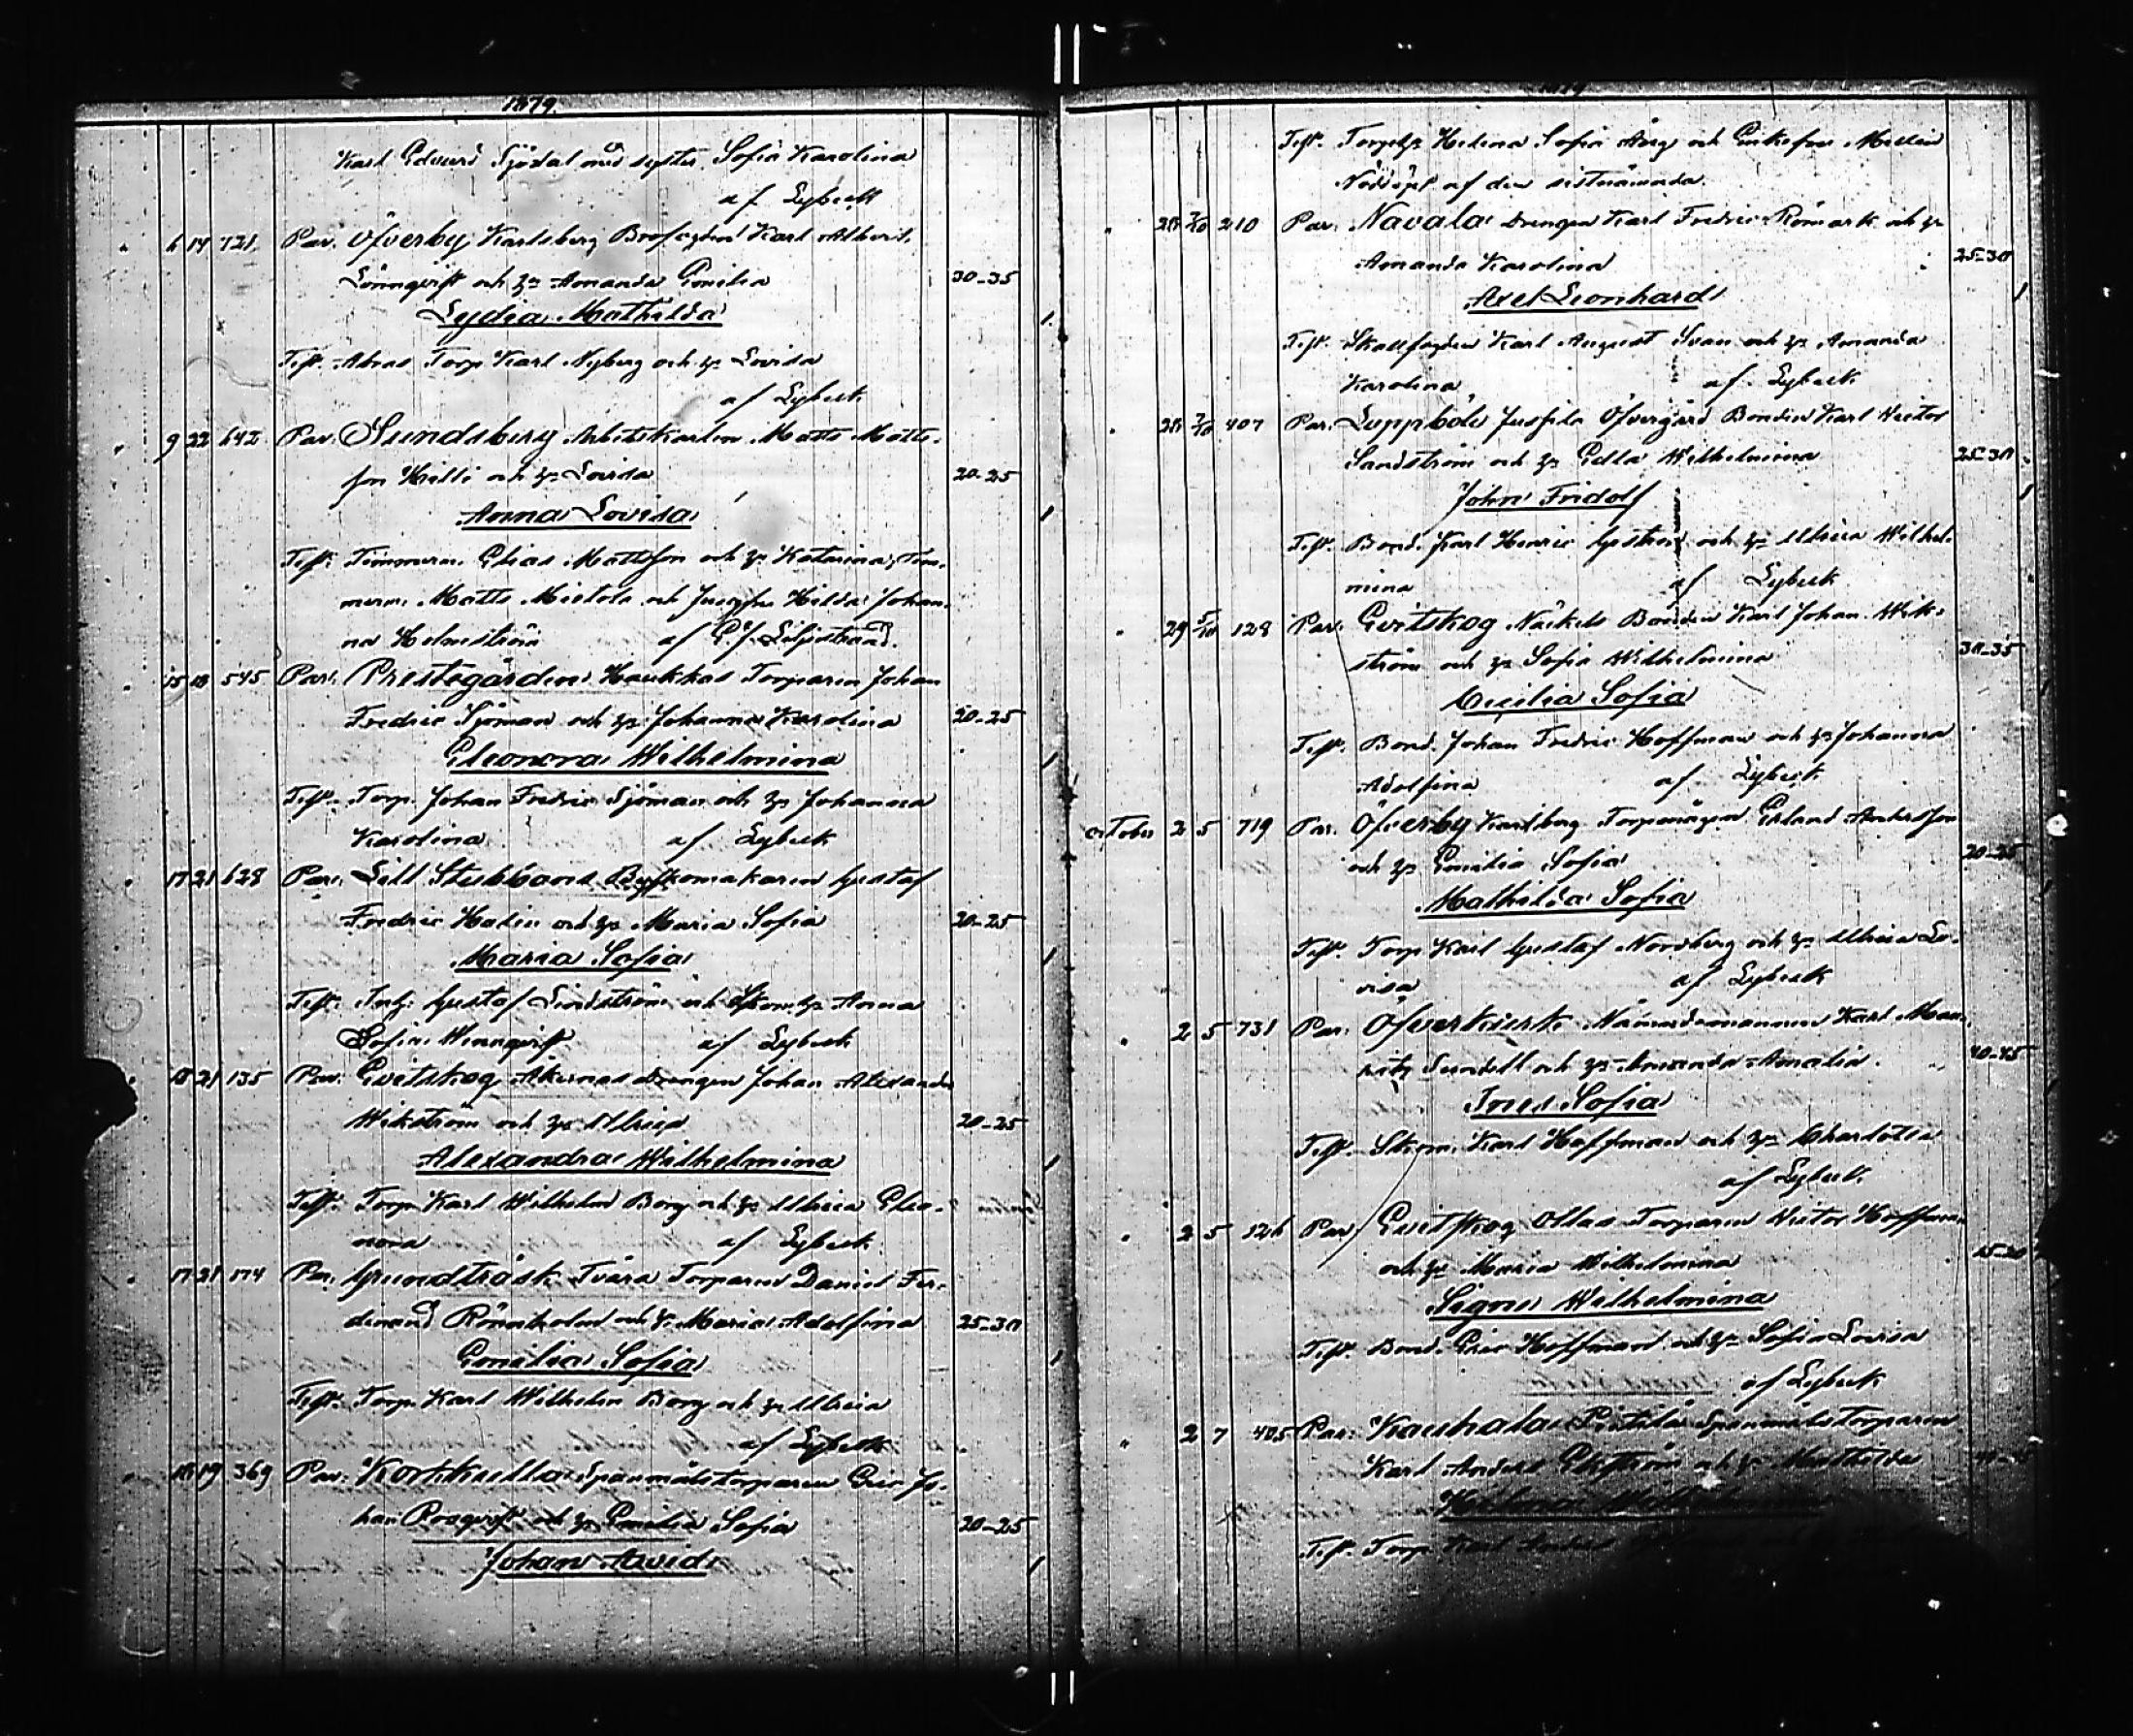 1879.
Karl Edvard Sjödal med syster Sofia Karolina
af Lybeck
" 6 14 721. Par. Öfverby Karlsberg Karl Albert
Lönnqvist och h. Amanda Emilia 30-35
Lydia Mathilda 1.
Test. Torp. Karl Nyberg och h. Lovisa
af Lybeck
" 9 22 642 Par. Sundsberg Arbetskarlen Matts Matts-
son och h. Lovisa 20-25
Anna Lovisa 1
Test. Timmerm. Elias Mattsson och h. Katarina, Tim-
merm. Matts och Jungfru Hilda Johan-
na Holmström af G. J. Liljestrand.
" 15 18 545 Par. Prestegården Haukkas Torparen Johan
Fredric Sjöman och h. Johanna Karolina 20-25
Eleonora Wilhelmina 1
Test. Torp. Johan Fredric Sjöman och h. Johanna
Karolina af Lybeck
" 17 21 628 Par. Lill Stubbans Byskomakaren Gustaf
Fredric Halin och h. Maria Sofia 20-25
Maria Sofia 1
Test. Gustaf Lindström och Skom. h. Anna
Sofia Wennqvist af Lybeck
" 18 21 135 Par. Evitskog Åkernas drengen Johan Alexander
Wikström och h. Ulrica 20-25
Alexandra Wilhelmina 1
Test. Torp. Karl Wilhelm Borg och h. Ulrica Eleo-
nora af Lybeck
" 17 21 174 Par. Grundträsk Tvära Torparen Daniel Fer-
dinand Rönnholm och h. Maria Adolfina 25-30
Emilia Sofia 1
Test. Torp. Karl Wilhelm Borg och h. Ulrica
af Lybeck
" 18 19 369 Par. Korkkulla Spanmålstorparen Eric Jo-
han Rosqvist och h. Emilia Sofia 20-25
Johan Arvid 1
1879
Test. Helena Sofia och
Nöddöpt af den sistnämnda.
" 28 7/10 210 Par. Navala Drengen Karl Fredric Römark och h.
Amanda Karolina 25-30
Axel Leonhard 1
Test. Karl August Svan och h. Amanda
Karolina af Lybeck
" 28 7/10 407 Par. Lappböle Jussila Öfvergård Bonden Karl Victor
Sandström och h. Edla Wilhelmina 25-30
John Fridolf 1
Test. Bond. Karl Henric och h. Ulrica Wilhel-
mina af Lybeck
" 29 5/10 128 Par. Evitskog Näckels Bonden Karl Johan Wik-
ström och h. Sofia Wilhelmina 30-35
Cecilia Sofia
Test. Bond. Johan Fredric Hoffman och h. Johanna
Adolfina af Lybeck
October 2 5 719 Par. Öfverby Karlberg Erland Andersson
och h. Emilia Sofia 20-25
Mathilda Sofia
Test. Torp. Karl Gustaf Nordberg och h. Ulrica Lo-
visa af Lybeck
" 2 5 731 Par. Öfverkurk Nämndemannen Karl Mau-
ritz Sundell och h. Amanda Amalia 40-45
Ines Sofia
Test. Skom. Karl Hoffman och h. Charlotta
af Lybeck
" 2 5 126 Par. Evitskog Ollas Torparen Victor Hoffman
och h. Maria Wilhelmina 25-30
Signe Wilhelmina
Test. Bond. Eric Hoffman och h. Sofia Lovisa
af Lybeck
" 2 7 405 Par. Kauhala Pietilä Spanmåls torparen
Karl Anders Ekström och h. Mathilda
Test. Torp. Karl